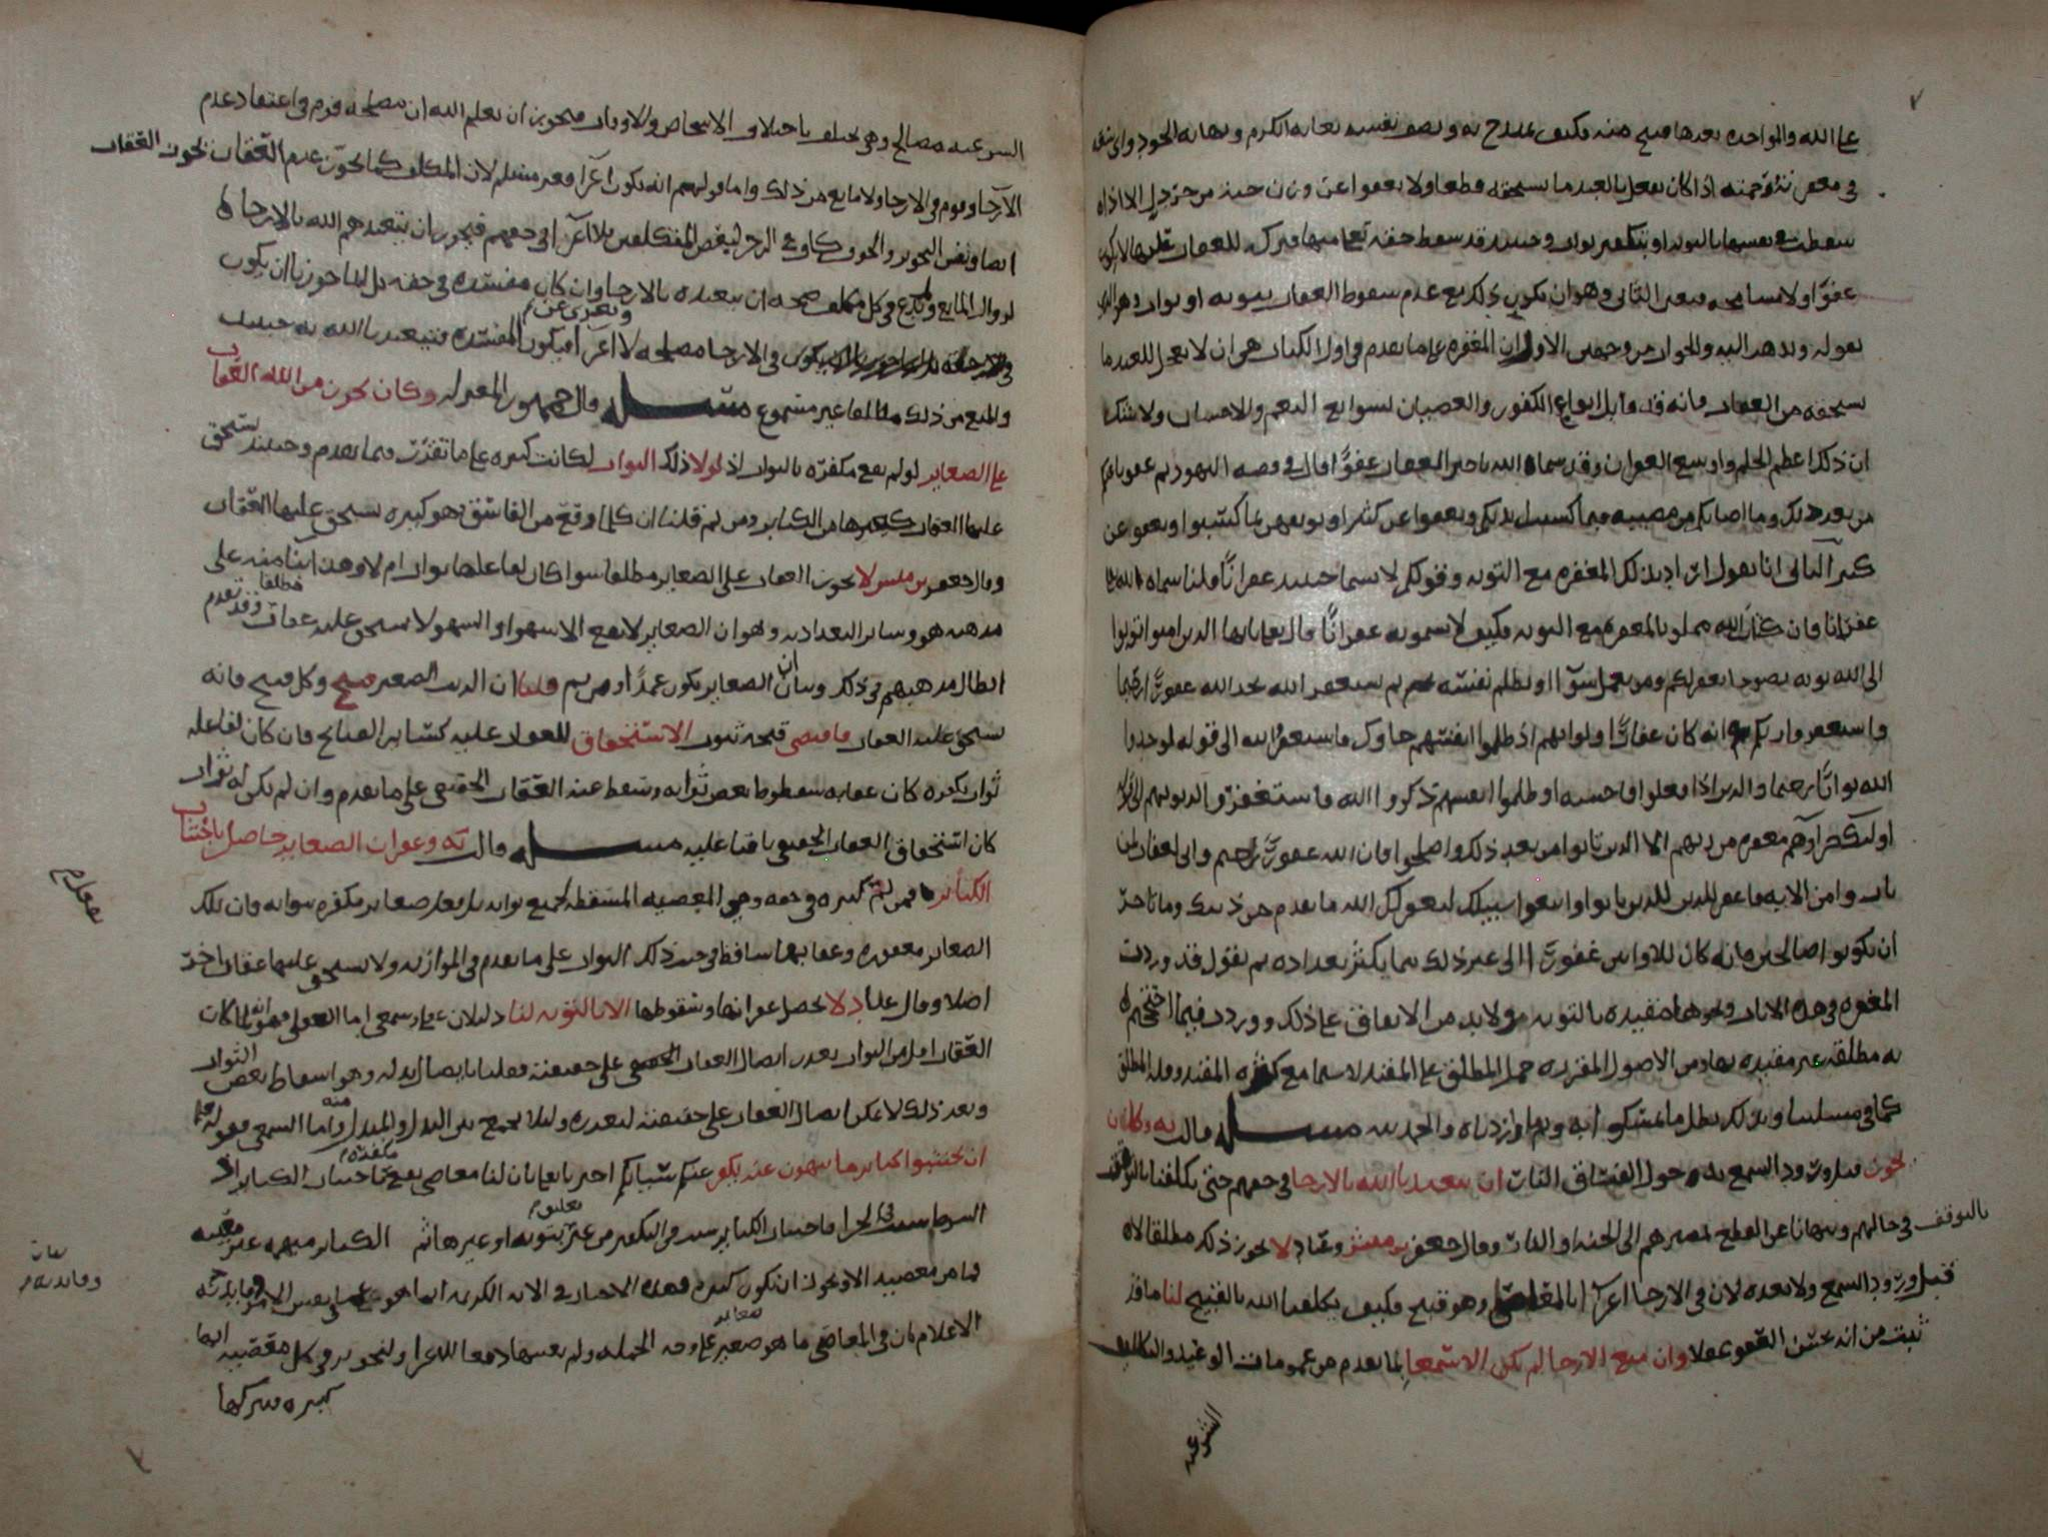 على الله والمواخده بعدها قبيح منه فكيف يمتدح به ويصف نفسه بغايه الكرم ونهايه الجود واي
في معنى اذا كان يفعل بالعبد ما يستحقه قطعا ولا يعفوا عن من حق الا اذا
سقطت بنفسها بالتوبه او بتكفير ثواب وحينئذ قد سقط حقه تركه للعقاب لا يكون
عفوا ولا مسامحه فتعين الثاني وهو ان يكون ذلك مع عدم سقوط العقاب بتوبه او ثواب وهو الذي
نقوله ونذهب اليه والجواب من وجهين الاول ان المغفره على ما تقدم في اول الكتاب هي ان لا يعجل للعبد ما
يستحقه من العقاب فانه قد قابل انواع الكفور والعصيان بسوابغ النعم والاحسان ولا شك
ان ذلك اعظم الحلم واوسع الغفران وقد سماه الله تاخير العقاب عفوا قال في قصه اليهود ثم عفونا عنكم
من بعد ذلك وما اصابكم من مصيبه فبما كسبت ايديكم ويعفوا عن كثير او يوبقهن بما كسبوا ويعفو عن
كثير الثاني انا نقول اراد بذلك المغفره مع التوبه وقولكم لا يسما حينئذ غفرانا قلنا سماه الله
غفرانا فان كتاب الله مملو بالمغفره مع التوبه فكيف لا تسمونه غفرانا قال تعالى يا ايها الذين امنوا توبوا
الى الله توبه نصوحا يغفر لكم ومن يعمل سوءا او يظلم نفسه ثم يستغفر الله يجد الله غفورا رحيما
واستغفروا ربكم انه كان غفارا ولو انهم اذ ظلموا انفسهم جاوك فاستغفروا الله الى قوله لوجدوا
الله توابا رحيما والذين اذا فعلوا فاحشه او ظلموا انفسهم ذكروا الله فاستغفروا لذنوبهم الى قوله
اولئك جزاوهم مغفره من ربهم الا الذين تابوا من بعد ذلك واصلحوا فان الله غفور رحيم واني لغفار لمن
تاب وامن الايه فاغفر للذين تابوا واتبعوا سبيلك ليغفر لك الله ما تقدم من ذنبك وما تاخر
ان تكونوا صالحين فانه كان للاوابين غفورا الى غير ذلك مما يكثر تعداده ثم نقول قد وردت
المغفره في هذه الايات ونحوها مقيده بالتوبه ولا بد من الاتفاق على ذلك ووردت فيما احتججتم
به مطلقه غير مقيده ومن الاصول المقرره حمل المطلق على المقيد لا سيما مع كثره المقيد وقله المطلق
كما في مسلتنا وبذلك بطل ما تمسكوا به والحمد لله مسله قالت يه وكان
يجوز قبل ورود السمع بدخول الفساق النار ان يتعبدنا الله بالارجا في حقهم حتى يكلفنا
بالتوقف في حالهم وينهانا عن القطع بمصيرهم الى الجنه او النار وقال جعفر بن مبشر وعباد لا يجوز ذلك مطلقا لا
قبل ورود السمع ولا بعده لان في الارجا اغراء بالمعاصي وهو قبيح فكيف يكلفنا الله بالقبيح لنا ما قد
ثبت من انه يحسن العفو عقلا وان منع الارجا لم يكن الا سمعا بما تقدم من عمومات الوعيد والتكاليف
الشرعيه
الشرعيه مصالح وهي تختلف باختلاف الاشخاص والاوقات فيجوز ان يعلم الله ان مصلحه قوم في اعتقاد عدم
الارجا وقوم في الارجا ولا مانع من ذلك واما قولهم انه يكون اغراء فغير مسلم لان المكلف كما يجوز عدم العقاب يجوز العقاب
ايضا ونفس التجويز والخوف كاف في الزجر لبعض المكلفين فلا اغراء في حقهم فيجوز ان يتعبدهم الله بالارجا
لزوال المانع في كل مكلف ان يتعبده بالارجا وان كان مفسده في حقه بل لما جوزنا ان يكون
ويعرى عن
في الارجا مصلحه لا اغراء فيكون المفسده فيتعبدنا الله به حينئذ
والمنع من ذلك مطلقا غير مسموع مسله قال جمهور المعتزله وكان يجوز من الله العقاب
على الصغاير لو لم تقع مكفره بالثواب اذ لولا ذلك الثواب لكانت كبيره على ما تقررت فيما تقدم وحينئذ يستحق
عليها العقاب كغيرها من الكباير ومن ثم قلنا ان كلما وقع من الفاسق فهو كبيره يستحق عليها العقاب
وقال جعفر بن مبشر لا يجوز العقاب على الصغاير مطلقا سوا كان لفاعلها ثواب ام لا وهذا بنا منه على
مذهبه هو وساير البغداديه وهو ان الصغاير لا تقع الا سهوا والسهو لا يستحق عليه عقاب مطلقا وقد تقدم
ابطال مذهبهم في ذلك وبيان ان الصغاير تكون عمدا ومن ثم قلنا ان الذنب الصغير قبيح وكل قبيح فانه
يستحق عليه العقاب فاقتضى قبحه ثبوت الاستحقاق للعقاب عليه كساير القبايح فان كان لفاعله
ثواب يكفره كان عقابه بسقوط بعض ثوابه وسقط عنه العقاب الحقيقي على ما تقدم وان لم يكن له ثواب
كان استحقاق العقاب الحقيقي باقيا عليه مسله قالت يه وغفران الصغاير حاصل باجتناب
الكباير فمن لم كبيره في حقه وهي المعصيه المسقطه لجميع ثوابه بل فعل صغاير مكفره بثوابه فان تلك
الصغاير مغفوره وعقابها ساقط في جنب ذلك الثواب على ما تقدم في الموازنه ولا يستحق عليها عقاب اخر
اصلا وقال لا يحصل غفرانها وسقوطها الا بالتوبه لنا دليلان عقلي وسمعي اما العقلي فهو انه لما كان
العقاب اقل من الثواب تعذر ايصال العقاب الحقيقي على حقيقته فقلنا بايصال بدله وهو اسقاط بعض الثواب
وبعد ذلك لا يمكن ايصال العقاب على حقيقته لتعذره ولئلا يجمع بين البدل والمبدل منه واما السمعي فقوله تعالى
ان تجتنبوا كباير ما تنهون عنه نكفر عنكم سيئاتكم اخبرنا تعالى بان لنا معاصي تقع مكفره باجتناب الكباير اذ
الشرط سبب في الجزا فاجتناب الكباير سبب في التكفير من غير تعليق بتوبه او غيرها ثم الكباير مبهمه غير معينه
فما من معصيه الا ويجوز ان تكون كبيره الايه الكريمه
الاعلام بان في المعاصي ما هو صغاير على وجه الجمله ولم يعينها دفعا للاغرا ولتجويز في كل معصيه انها
كبيره فيتركها